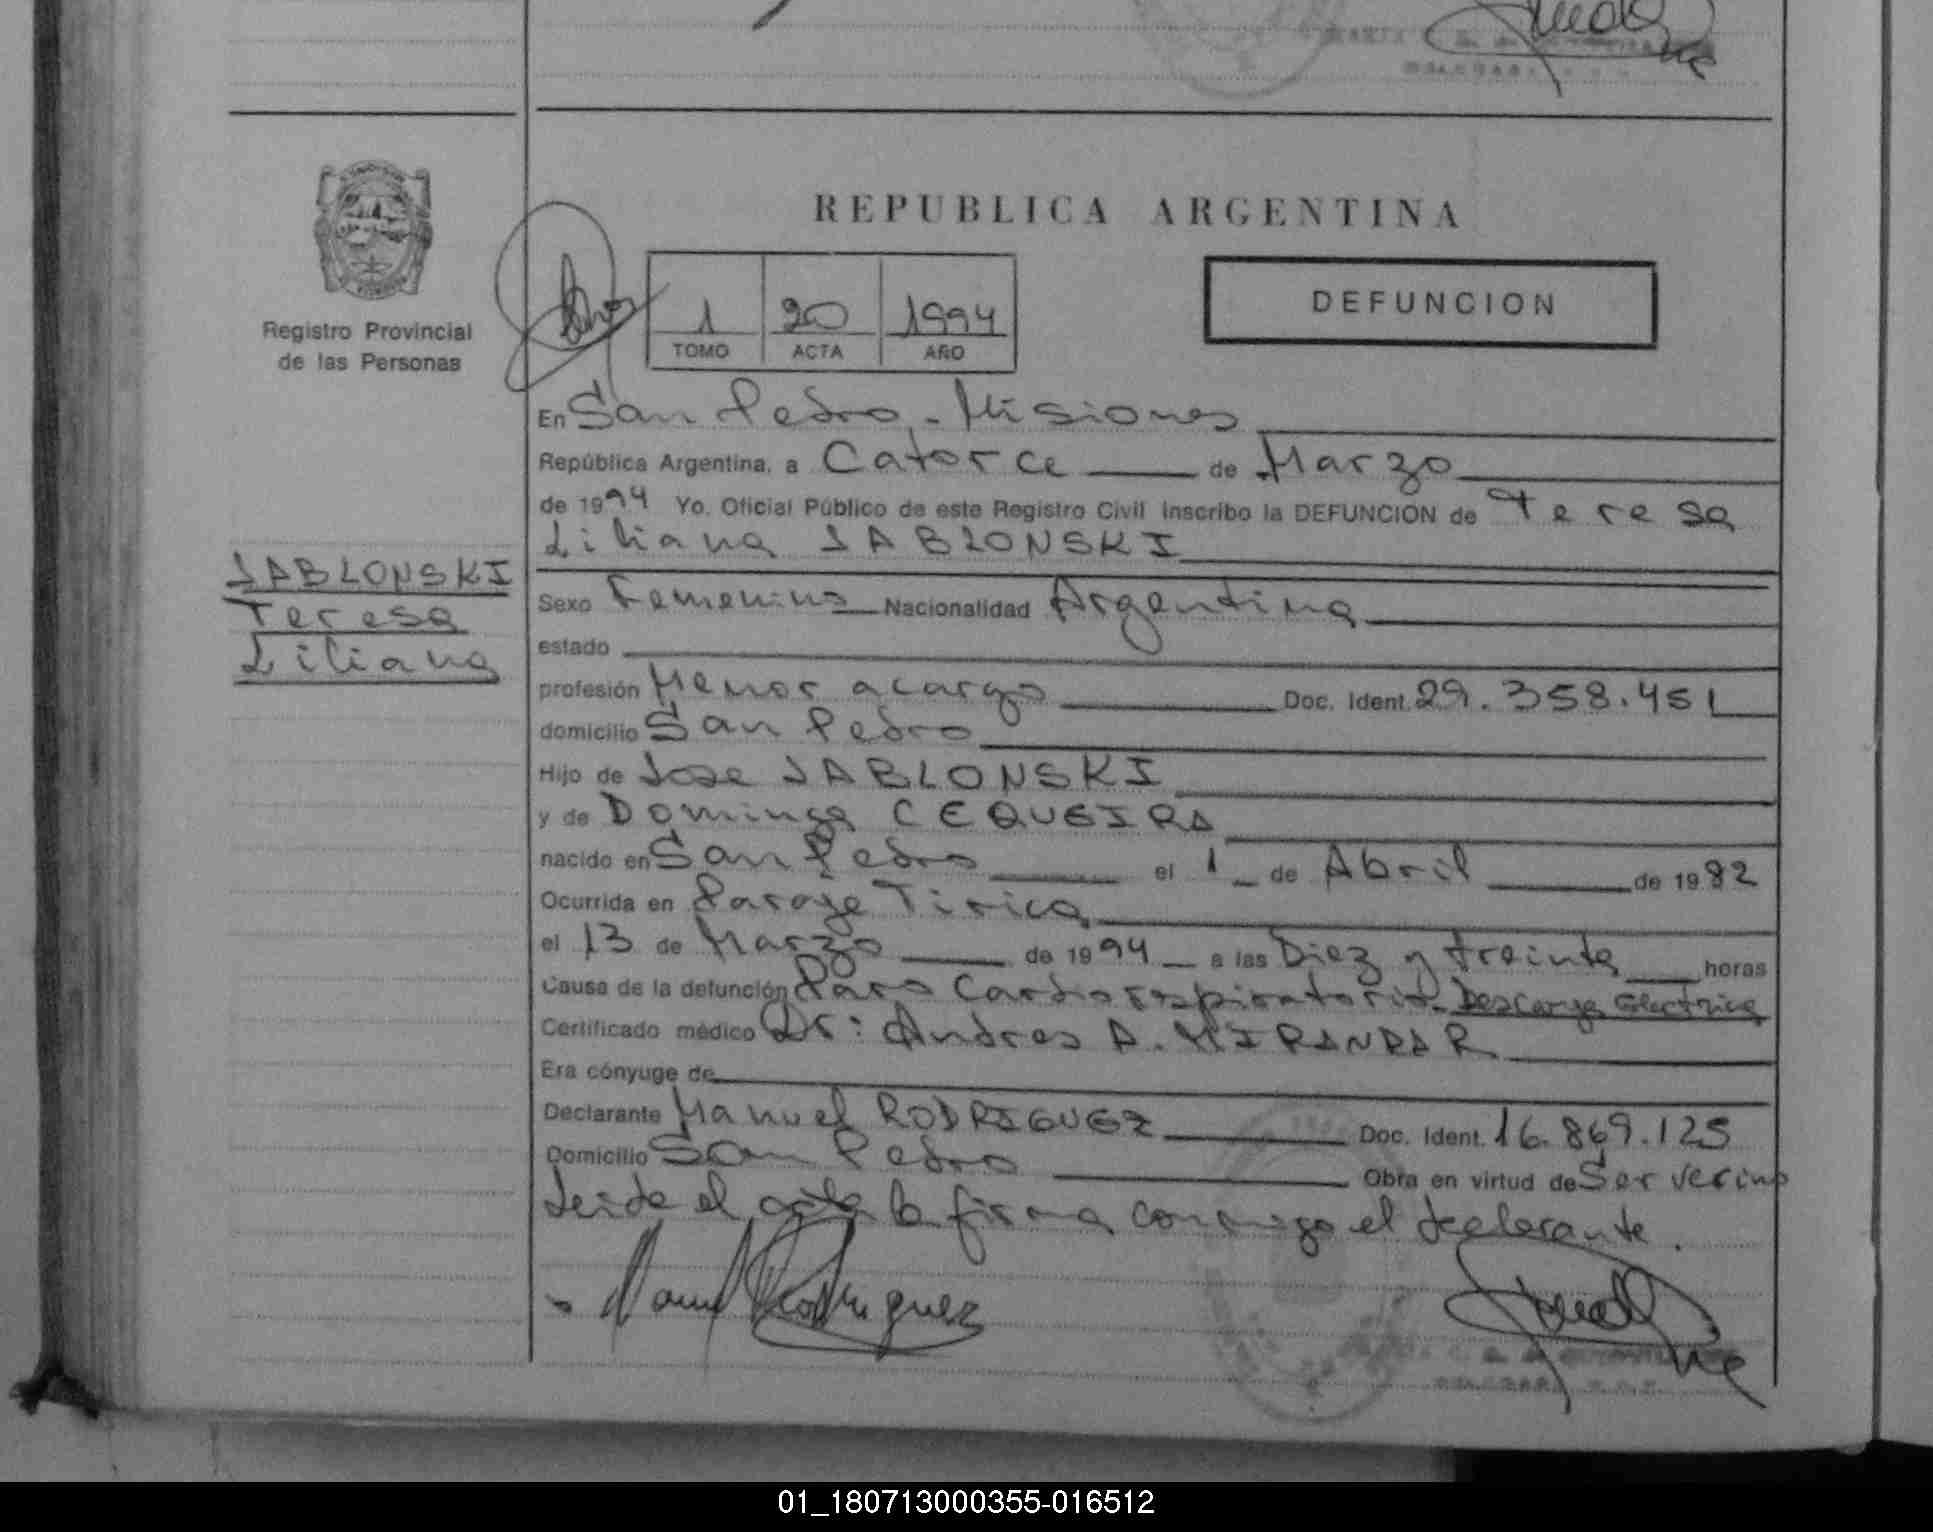 REPUBLICA ARGENTINA
Registro Provincial
de las Personas
1 20 1994
TOMO ACTA AÑO
DEFUNCION
En San Pedro - Misiones
República Argentina, a Catorce de Marzo
de 1994 Yo. Oficial Público de este Registro Civil inscribo la DEFUNCION de Teresa
Liliana JABLONSKI
JABLONSKI
Teresa
Liliana
Sexo Femenino Nacionalidad Argentina
estado
profesión Menor a cargo Doc. Ident. 29.358.451
domicilio San Pedro
Hijo de Jose JABLONSKI
y de Dominga CEQUEIRA
nacido en San Pedro el 1 de Abril de 1982
Ocurrida en Paraje Tirica
el 13 de Marzo de 1994 a las Diez y treinta horas
Causa de la defunción Paro Cardiorespiratorio - Descarga Electrica
Certificado médico Dr: Andres A. MIRANDA R.
Era cónyuge de
Declarante Manuel RODRIGUEZ Doc. Ident. 16.869.125
Domicilio San Pedro Obra en virtud de Ser vecino
Leida el acta la firma conmigo el declarante.
Manuel Rodriguez
01_180713000355-016512